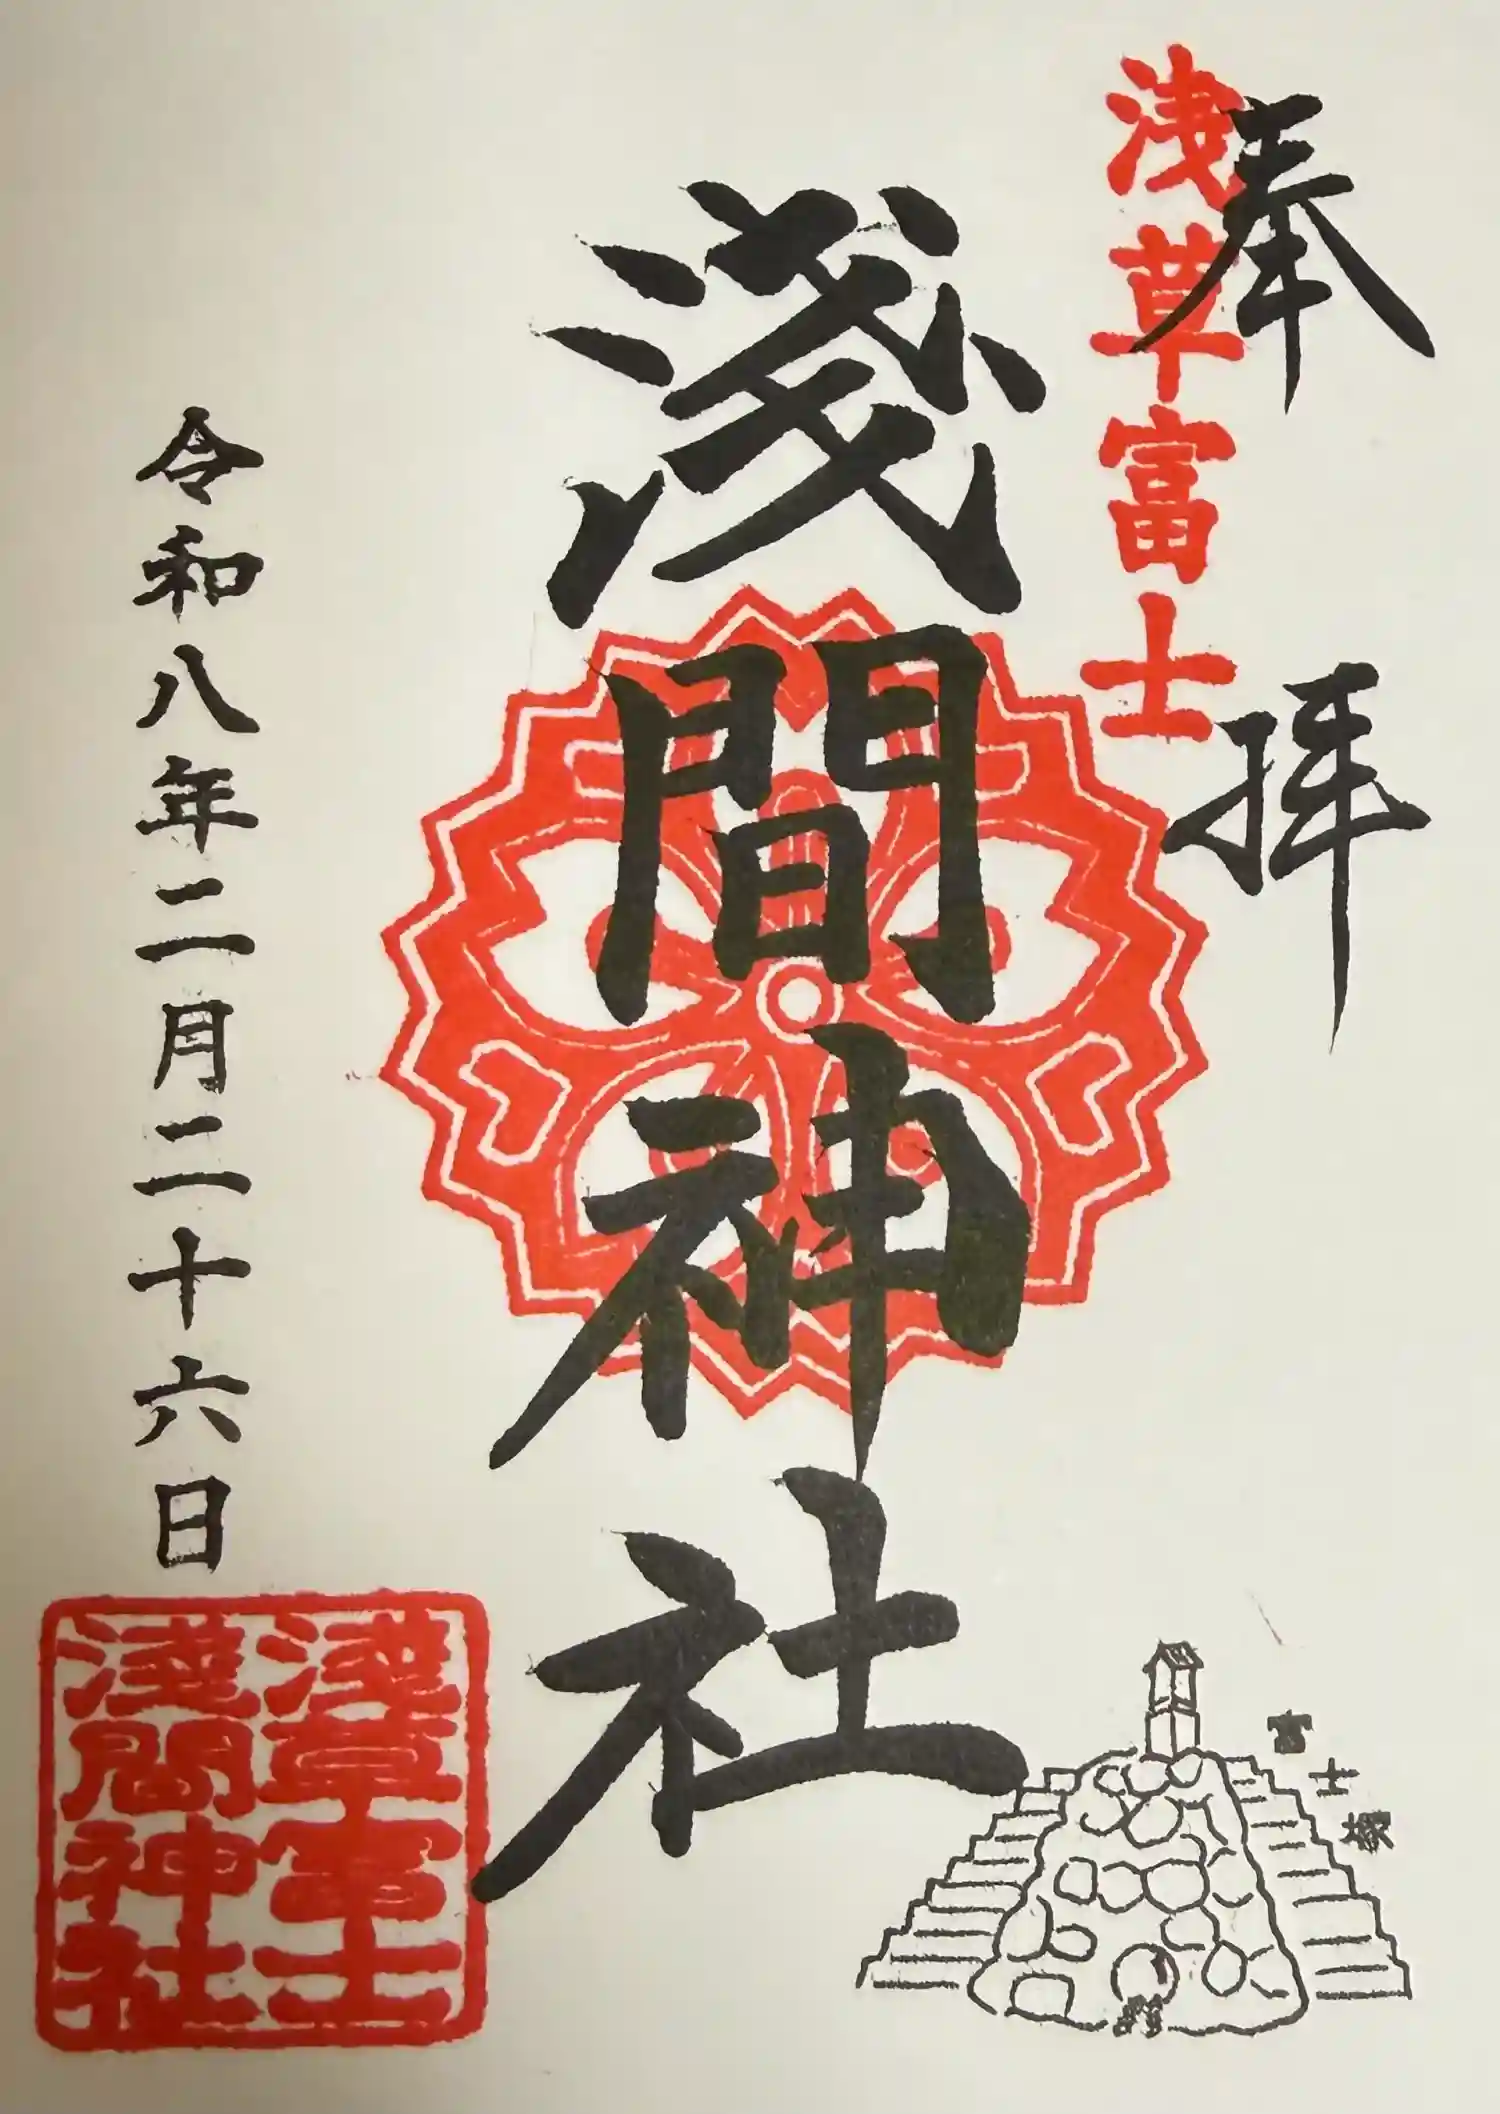 奉拝
淺草富士
淺間神社
富士塚
令和八年二月二十六日
淺草富士
淺間神社